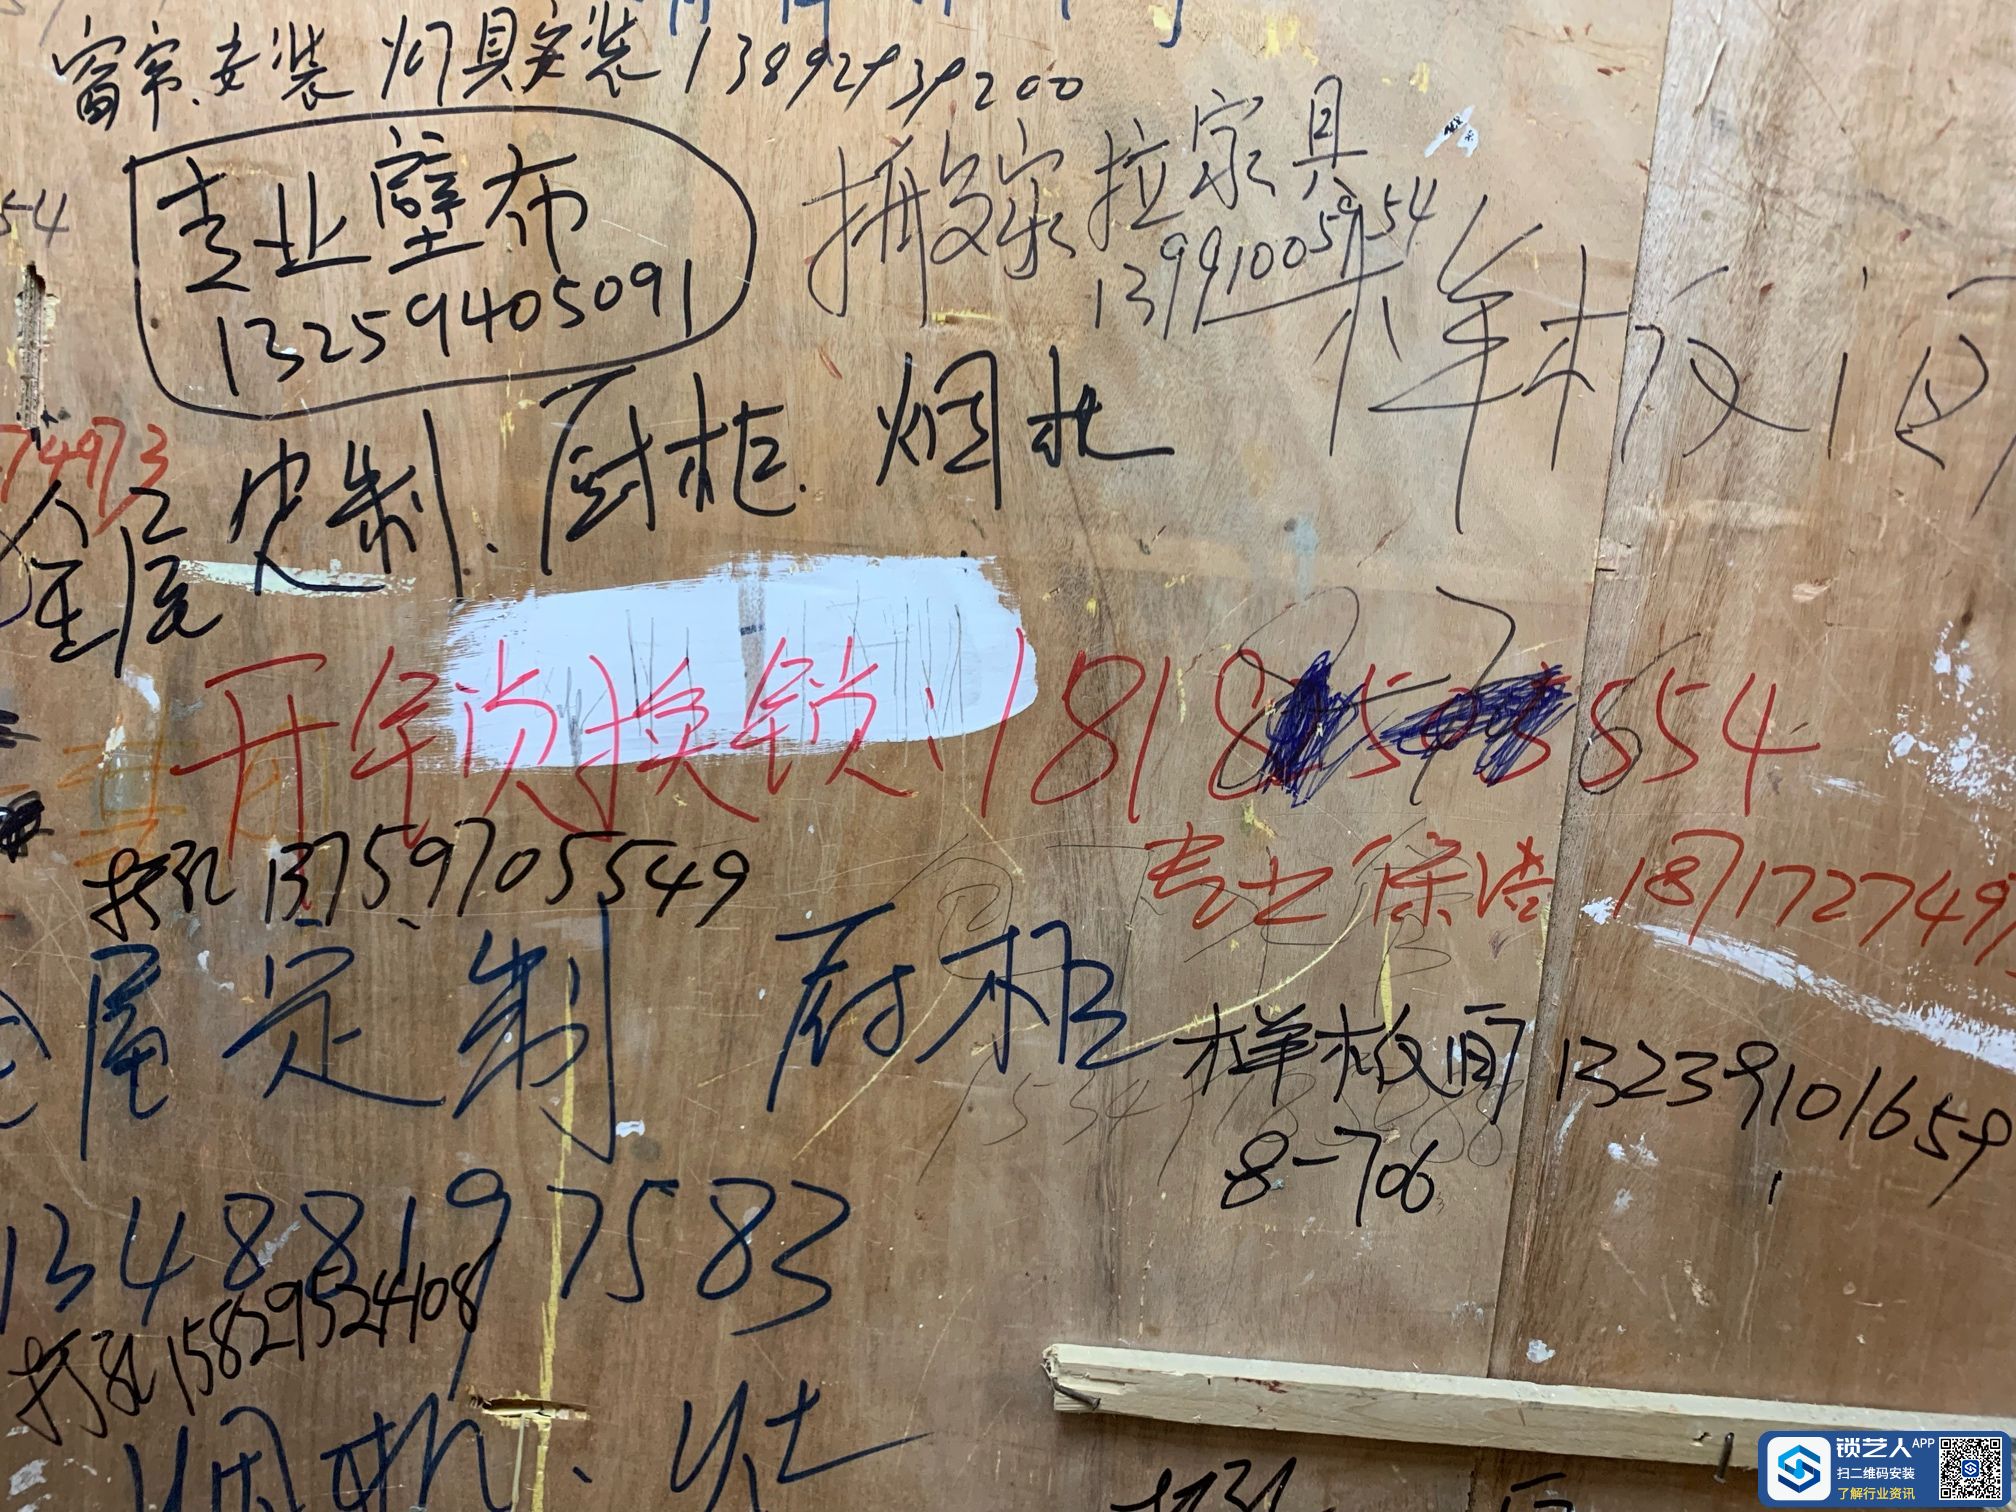 窗帘.安装 灯具安装 13892939200
54
专业壁布
13259405091
搬家 拉家具
13991005954
样板间
74973
全屋定制.厨柜.烟机
开锁换锁:1818
554
打孔 13759705549
专业保洁 187172749
屋定制 厨柜
样板间 13239101659
8-706
13488197583
打孔 15829524108
烟机.灶
打孔
锁艺人APP
扫二维码安装
了解行业资讯